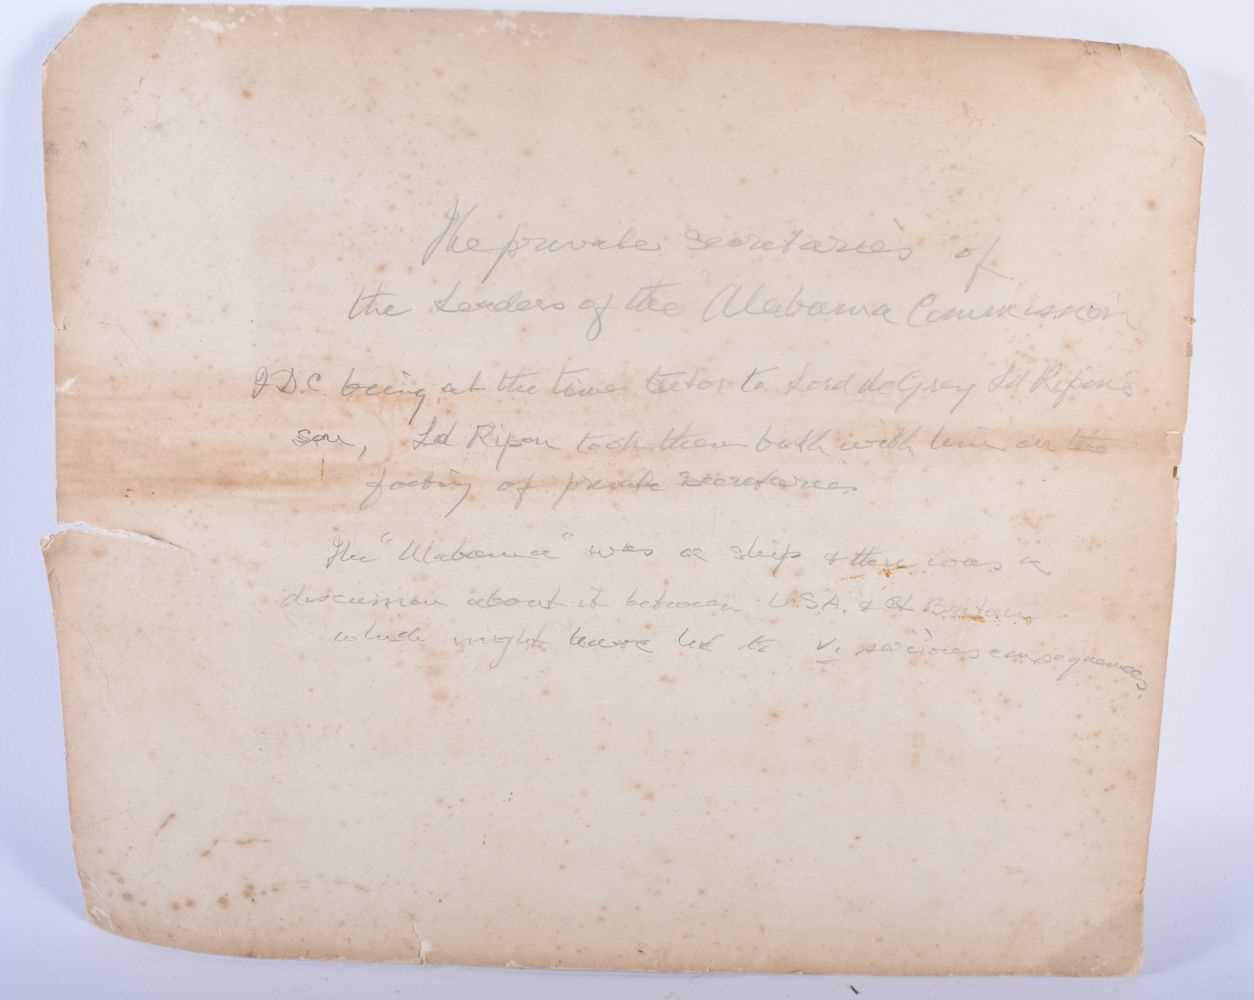 The private secretaries of
the Leaders of the Alabama Commission
J D.C. being at the time tutor to Lord de Grey Ld Ripon's
son, Ld Ripon took them both with him on the
footing of private secretaries
The "Alabama" was a ship & there was a
discussion about it between U.S.A. & Gt Britain
which might have led to v. serious consequences.